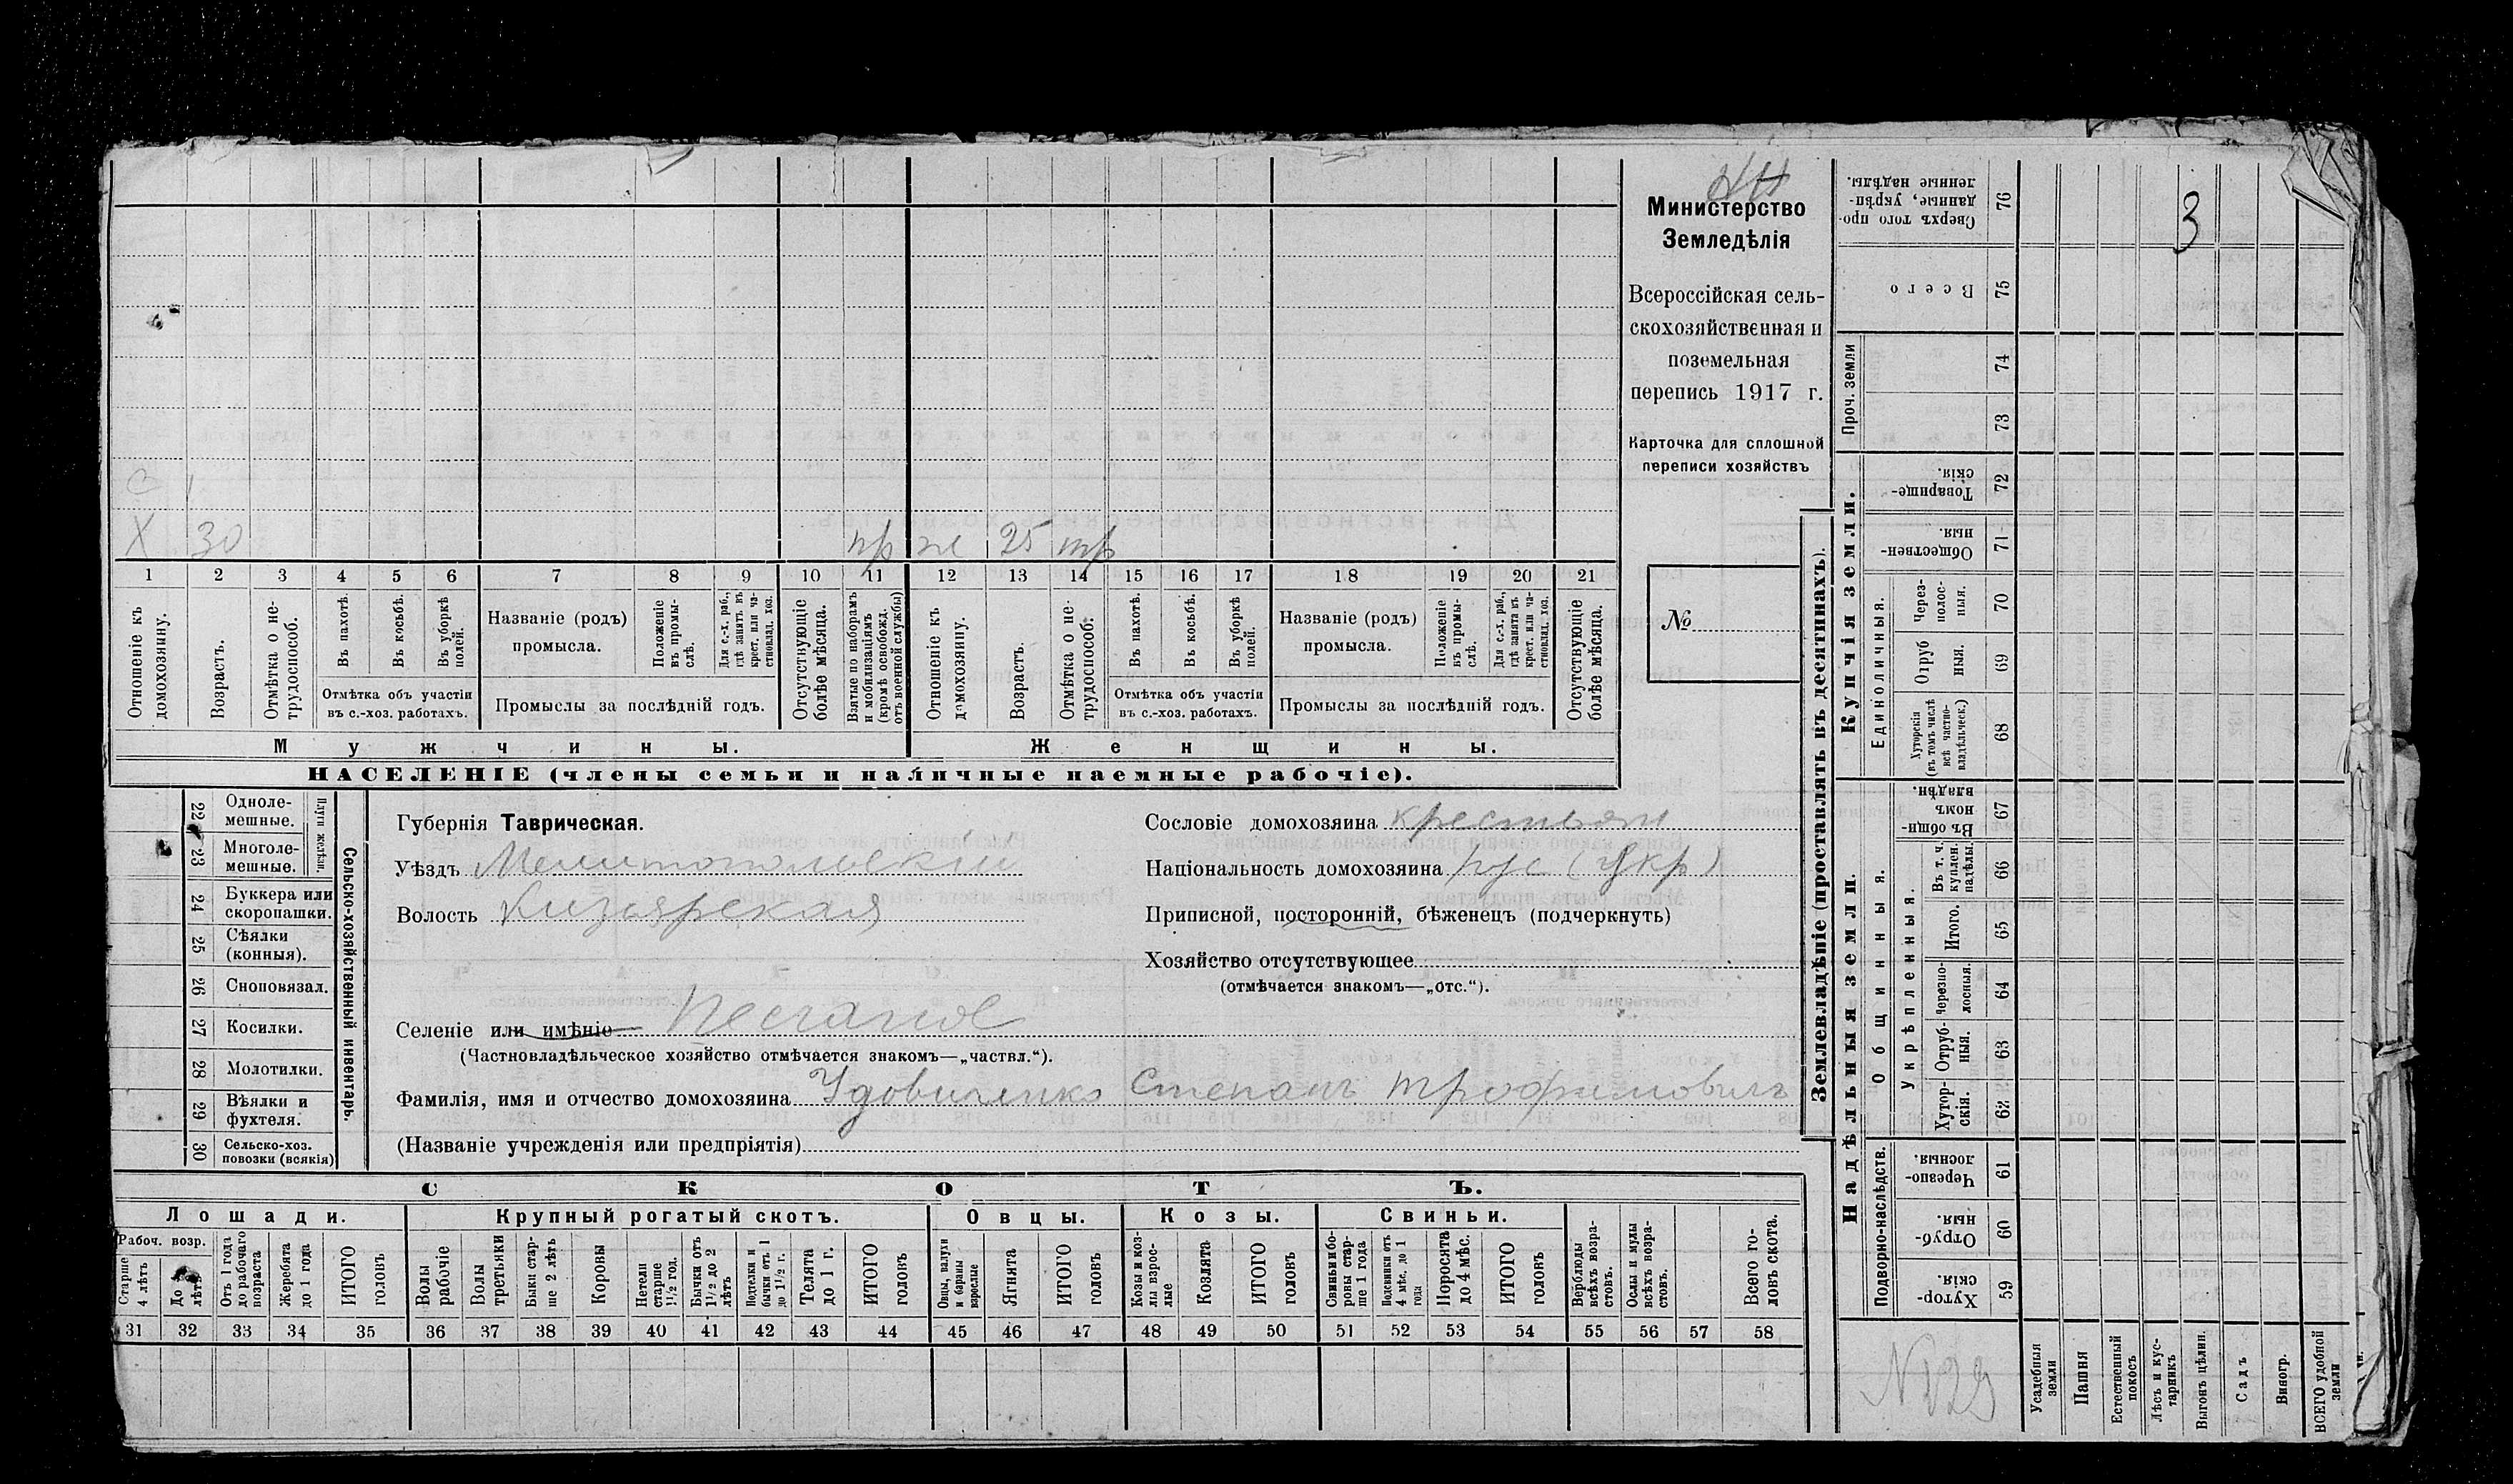 Министерство
Земледѣлія
Всероссійская сель-
скохозяйственная и
поземельная
перепись 1917 г.
Карточка для сплошной
переписи хозяйствъ
№
3
С 1
Х 30 пр ж 25 тр
1 2 3 4 5 6 7 8 9 10 11 12 13 14 15 16 17 18 19 20 21
Отношеніе къ домохозяину.
Возрастъ.
Отмѣтка о не-трудоспособ.
Въ пахотѣ.
Въ косьбѣ.
Въ уборкѣ полей.
Отмѣтка объ участіи
въ с.-хоз. работахъ.
Названіе (родъ)
промысла.
Положеніе въ промы-слѣ.
Для с.-х. раб., гдѣ занятъ въ крест. или ча-стновлад. хоз.
Промыслы за послѣдній годъ.
Отсутствующіе болѣе мѣсяца.
Взятые по наборамъ и мобилизаціямъ (кромѣ освобожд. отъ военной службы)
Отношеніе къ домохозяину.
Возрастъ.
Отмѣтка о не-трудоспособ.
Въ пахотѣ.
Въ косьбѣ.
Въ уборкѣ полей.
Отмѣтка объ участіи
въ с.-хоз. работахъ.
Названіе (родъ)
промысла.
Положеніе въ промы-слѣ.
Для с.-х. раб., гдѣ занята въ крест. или ча-стновлад. хоз.
Промыслы за послѣдній годъ.
Отсутствующіе болѣе мѣсяца.
Мужчины.
Женщины.
НАСЕЛЕНІЕ (члены семьи и наличные наемные рабочіе).
22 Однолемешные.
23 Многолемешные.
Плуги желѣзн.
24 Буккера или скоропашки.
25 Сѣялки (конныя).
26 Сноповязал.
27 Косилки.
28 Молотилки.
29 Вѣялки и фухтеля.
30 Сельско-хоз. повозки (всякія)
Сельско-хозяйственный инвентарь.
Губернія Таврическая.
Уѣздъ Мелитопольскій
Волость Кизіярская
Селеніе или имѣніе Песчаное
(Частновладѣльческое хозяйство отмѣчается знакомъ—„частвл.“).
Фамилія, имя и отчество домохозяина Удовиченко Степанъ Трофимовичъ
(Названіе учрежденія или предпріятія)
Сословіе домохозяина крестьян
Національность домохозяина рус (укр)
Приписной, посторонній, бѣженецъ (подчеркнуть)
Хозяйство отсутствующее
(отмѣчается знакомъ—„отс.“).
СКОТЪ.
Лошади.
Крупный рогатый скотъ.
Овцы.
Козы.
Свиньи.
Рабоч. возр.
Старше 4 лѣтъ
До 4 лѣтъ
Отъ 1 года до рабочаго возраста
Жеребята до 1 года
ИТОГО головъ
Волы рабочіе
Волы третьяки
Быки стар-ше 2 лѣтъ
Коровы
Нетели старше 1 1/2 год.
Бычки отъ 1 1/2 до 2 лѣтъ
Подтелки и бычки отъ 1 до 1 1/2 г.
Телята до 1 г.
ИТОГО головъ
Овцы, валухи и бараны взрослые
Ягнята
ИТОГО головъ
Козы и коз-лы взрос-лые
Козлята
ИТОГО головъ
Свиньи и бо-ровы стар-ше 1 года
Подсвинки отъ 4 мѣс. до 1 года
Поросята до 4 мѣс.
ИТОГО головъ
Верблюды всѣхъ возра-стовъ.
Ослы и мулы всѣхъ возра-стовъ.
Всего го-ловъ скота.
31 32 33 34 35 36 37 38 39 40 41 42 43 44 45 46 47 48 49 50 51 52 53 54 55 56 57 58
Землевладѣніе (проставлять въ десятинахъ).
Надѣльныя земли.
Купчія земли.
Проч. земли
Подворно-наслѣдств.
Общинныя.
Укрѣпленныя.
Единоличныя.
Сверхъ того про-данные, укрѣп-ленные надѣлы. 76
Всего 75
74
73
Товарище-скія. 72
Обществен-ныя. 71
Через-полос-ныя. 70
Отруб-ныя. 69
Хуторскія (въ томъ числѣ всѣ частно-владѣльческ.) 68
Въ общи-номъ владѣн. 67
Въ т. ч. куплен. надѣлы. 66
Итого. 65
Черезпо-лосныя. 64
Отруб-ныя. 63
Хутор-скія. 62
Черезпо-лосныя. 61
Отруб-ныя. 60
Хутор-скія. 59
N129
Усадебныя земли
Пашня
Естественный покосъ
Лѣсъ и кус-тарникъ
Выгонъ цѣлин.
Садъ
Виногр.
ВСЕГО удобной земли